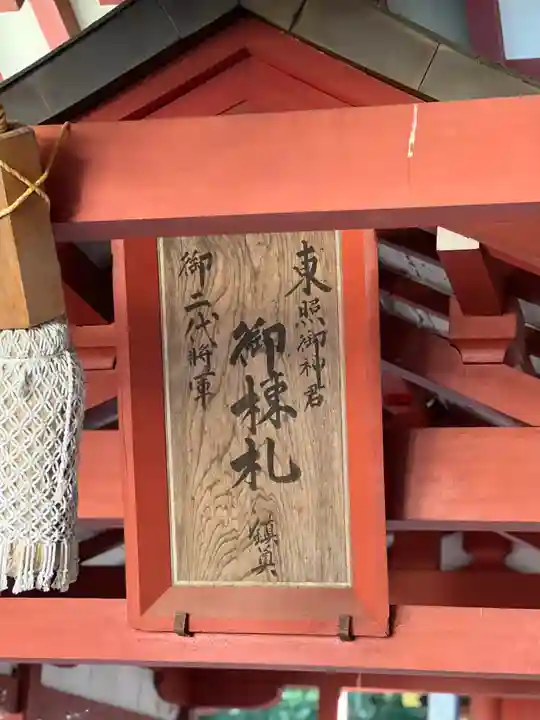 東照御神君
御棟札
鎮奠
御二代将軍